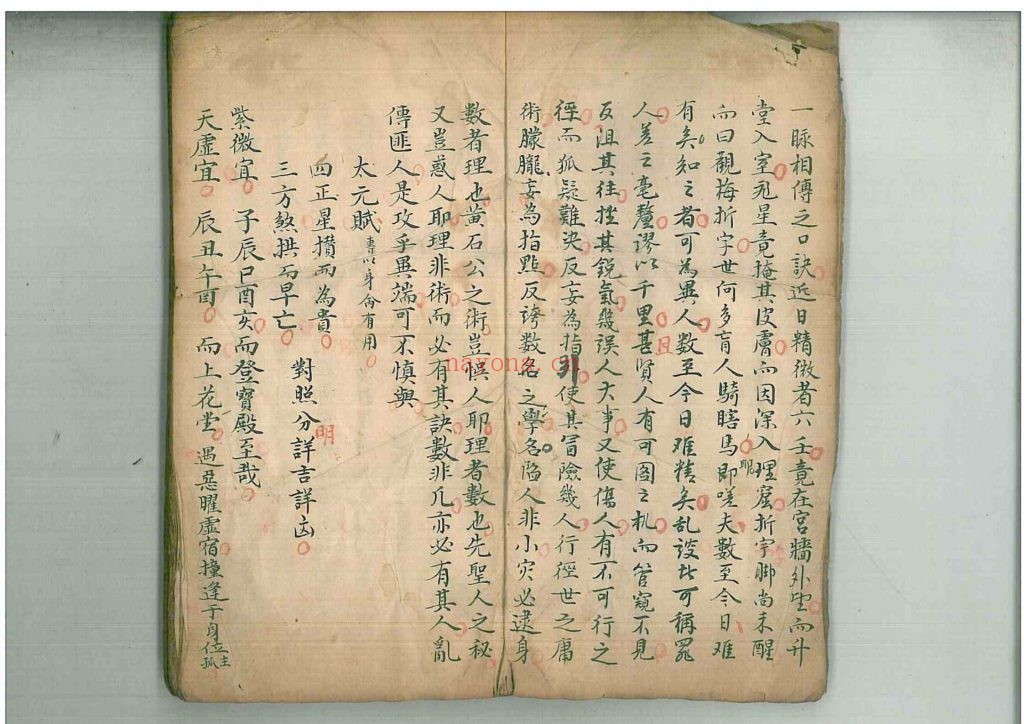 一脉相傳之口訣近日精微者六壬竟在宮牆外望而升
堂入室孔星竟掩其皮膚而因深入理窟折字脚尚未醒
而曰觀梅折字世何多盲人騎瞎馬即嗟夫數至今日难
眼
有矣知之者可為異人數至今日难精矣乱談皆可稱罷
人差之毫釐謬以千里甚賢人有可圖之机而管窺不見
且
反阻其往挫其鋭氣幾誤人大事又使傷人有不可行之
徑而狐疑難决反妄為指引使其冒險幾人行徑世之庸
術朦朧妄為指點反誇数名之學名陷人非小灾必逮身
數者理也黃石公之術豈悮人耶理者數也先聖人之秘
又豈惑人耶理非術而必有其訣數非凡亦必有其人亂
傳匪人是攻乎異端可不慎與
太元賦 專以身命有用
四正星攢而為貴 對照分詳吉詳凶
明
三方煞拱而早亡
紫微宜 子辰巳酉亥而登寶殿至哉
天虚宜 辰丑午酉 而上花堂 遇惡曜虚宿撞逢于身位主孤
nayona.cn